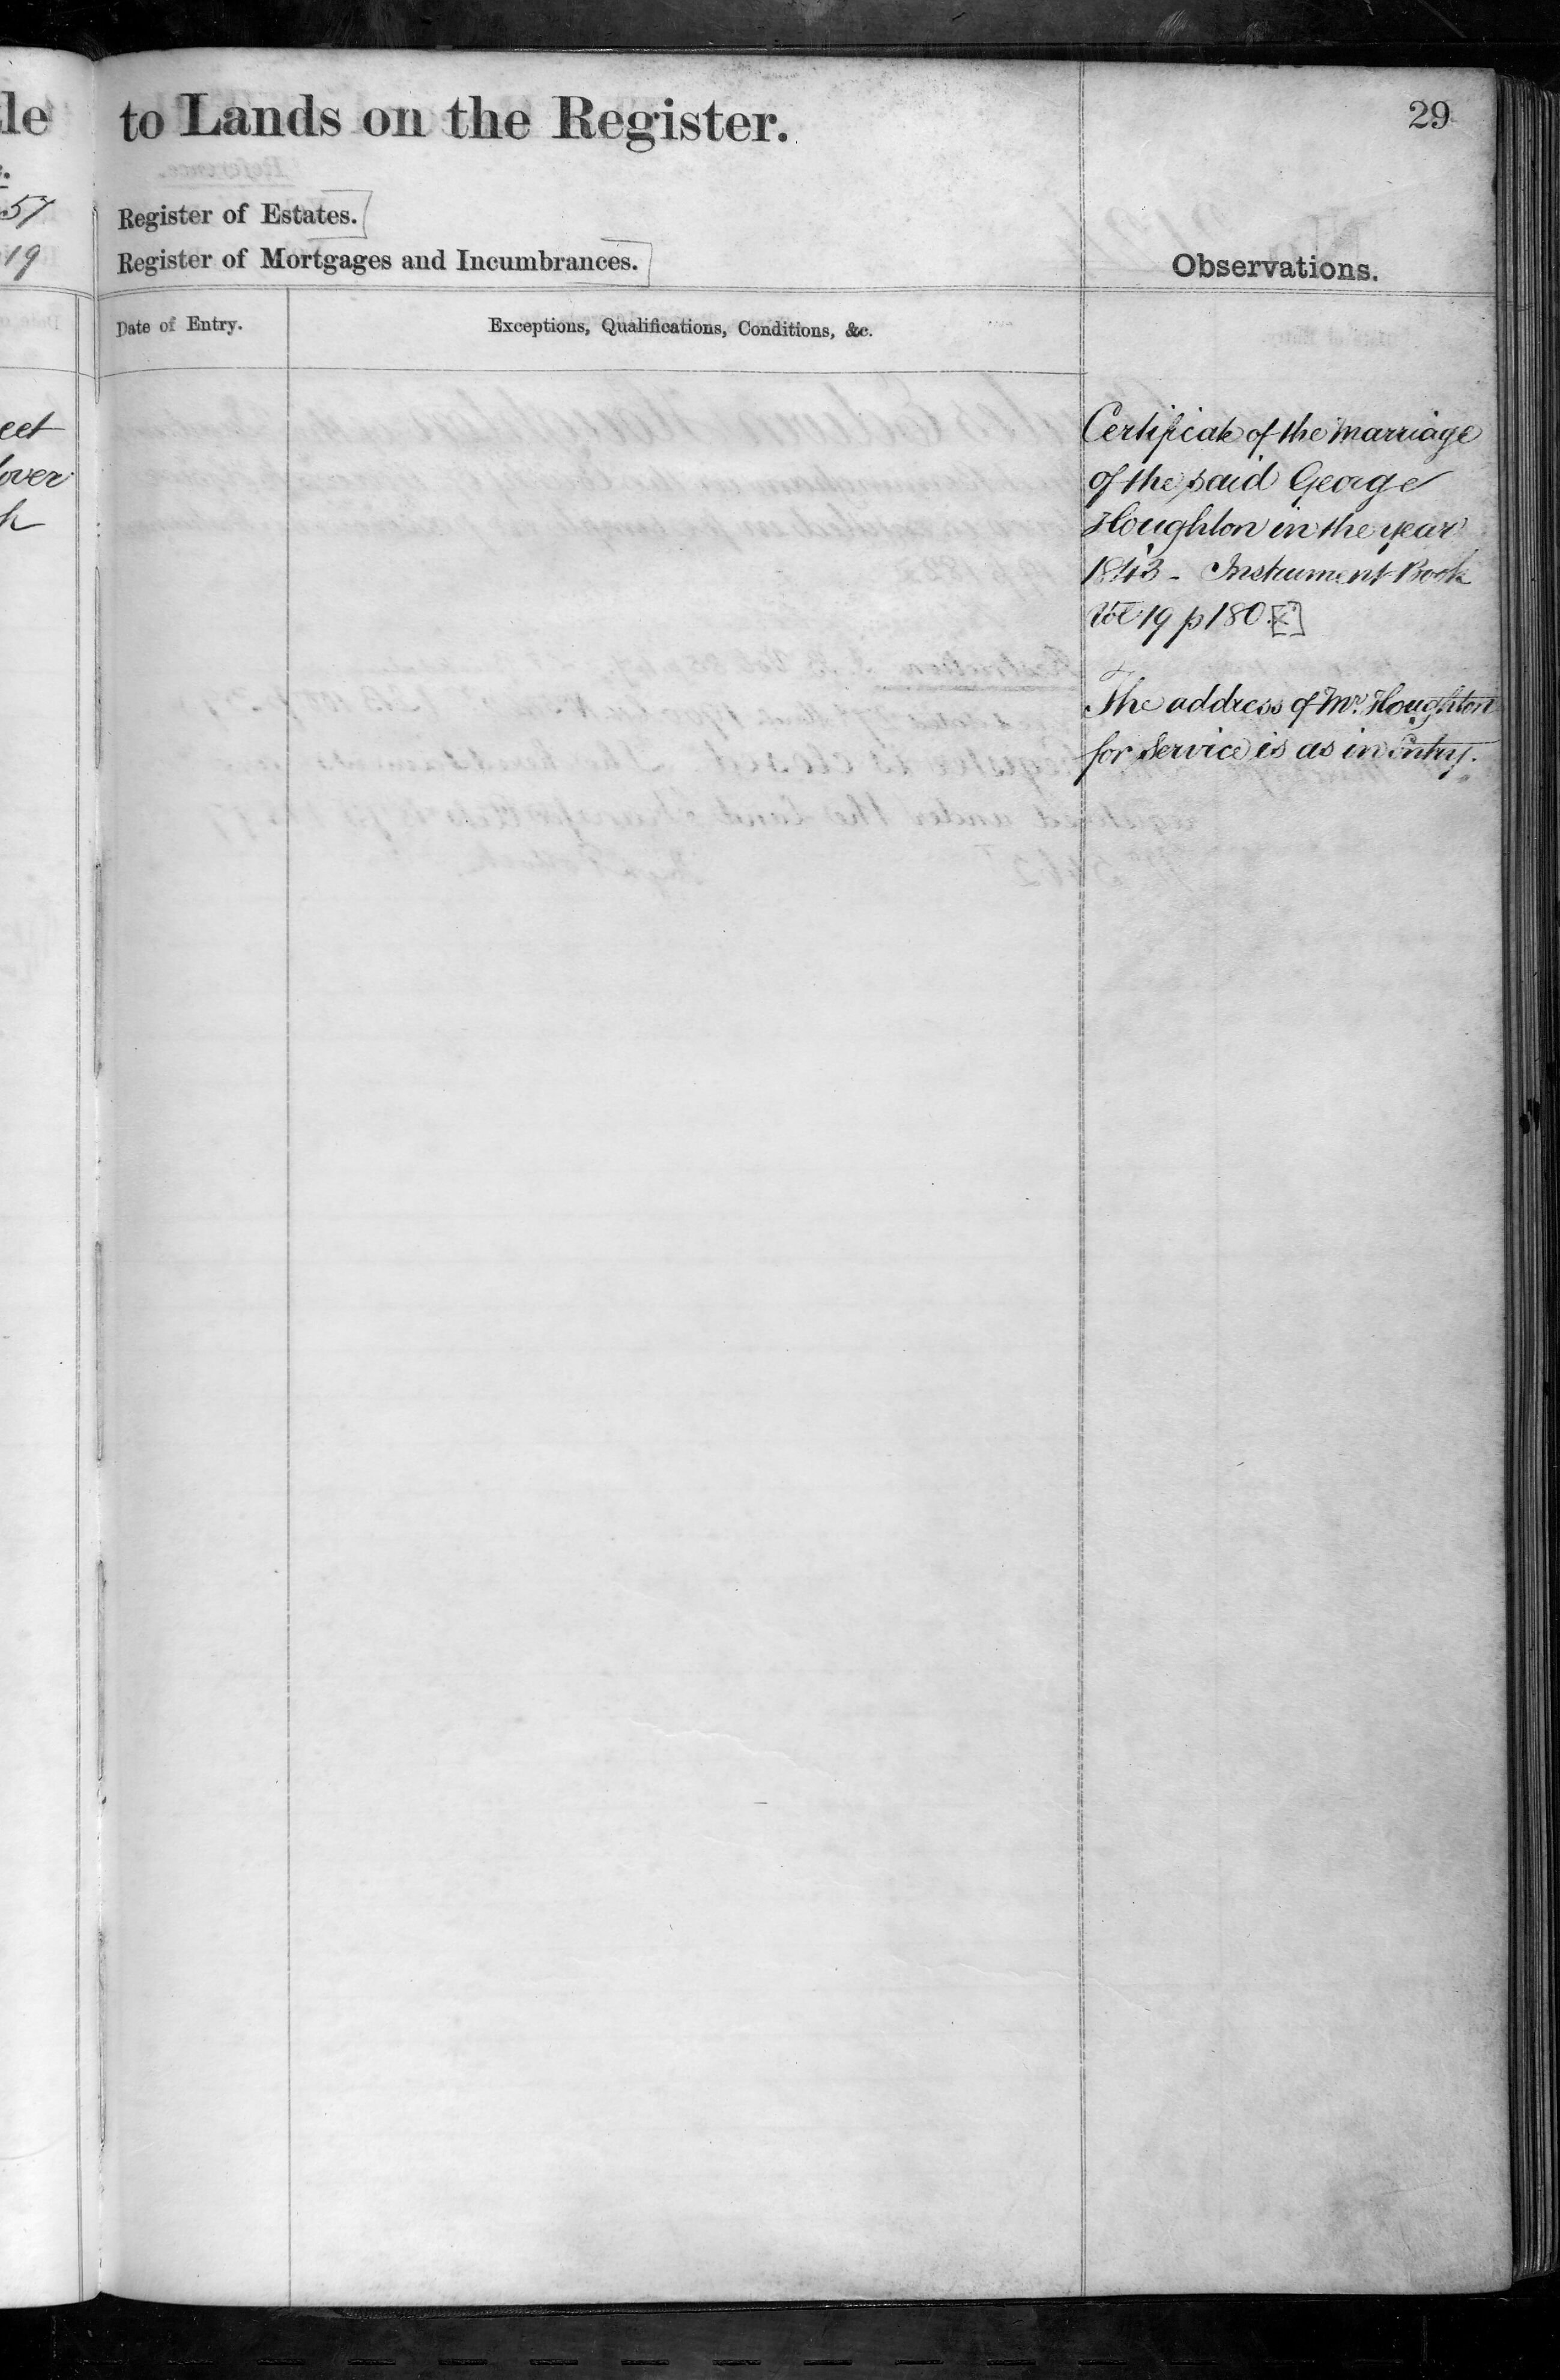 le
to Lands on the Register.
29
57
Register of Estates.
19
Register of Mortgages and Incumbrances.
Observations.
Date of Entry.
Exceptions, Qualifications, Conditions, &c.
eet
over
h
Certificate of the marriage
of the said George
Houghton in the year
1843 - Instrument Book
Vol 19 p 180
The address of Mr. Houghton
for Service is as in Entry.